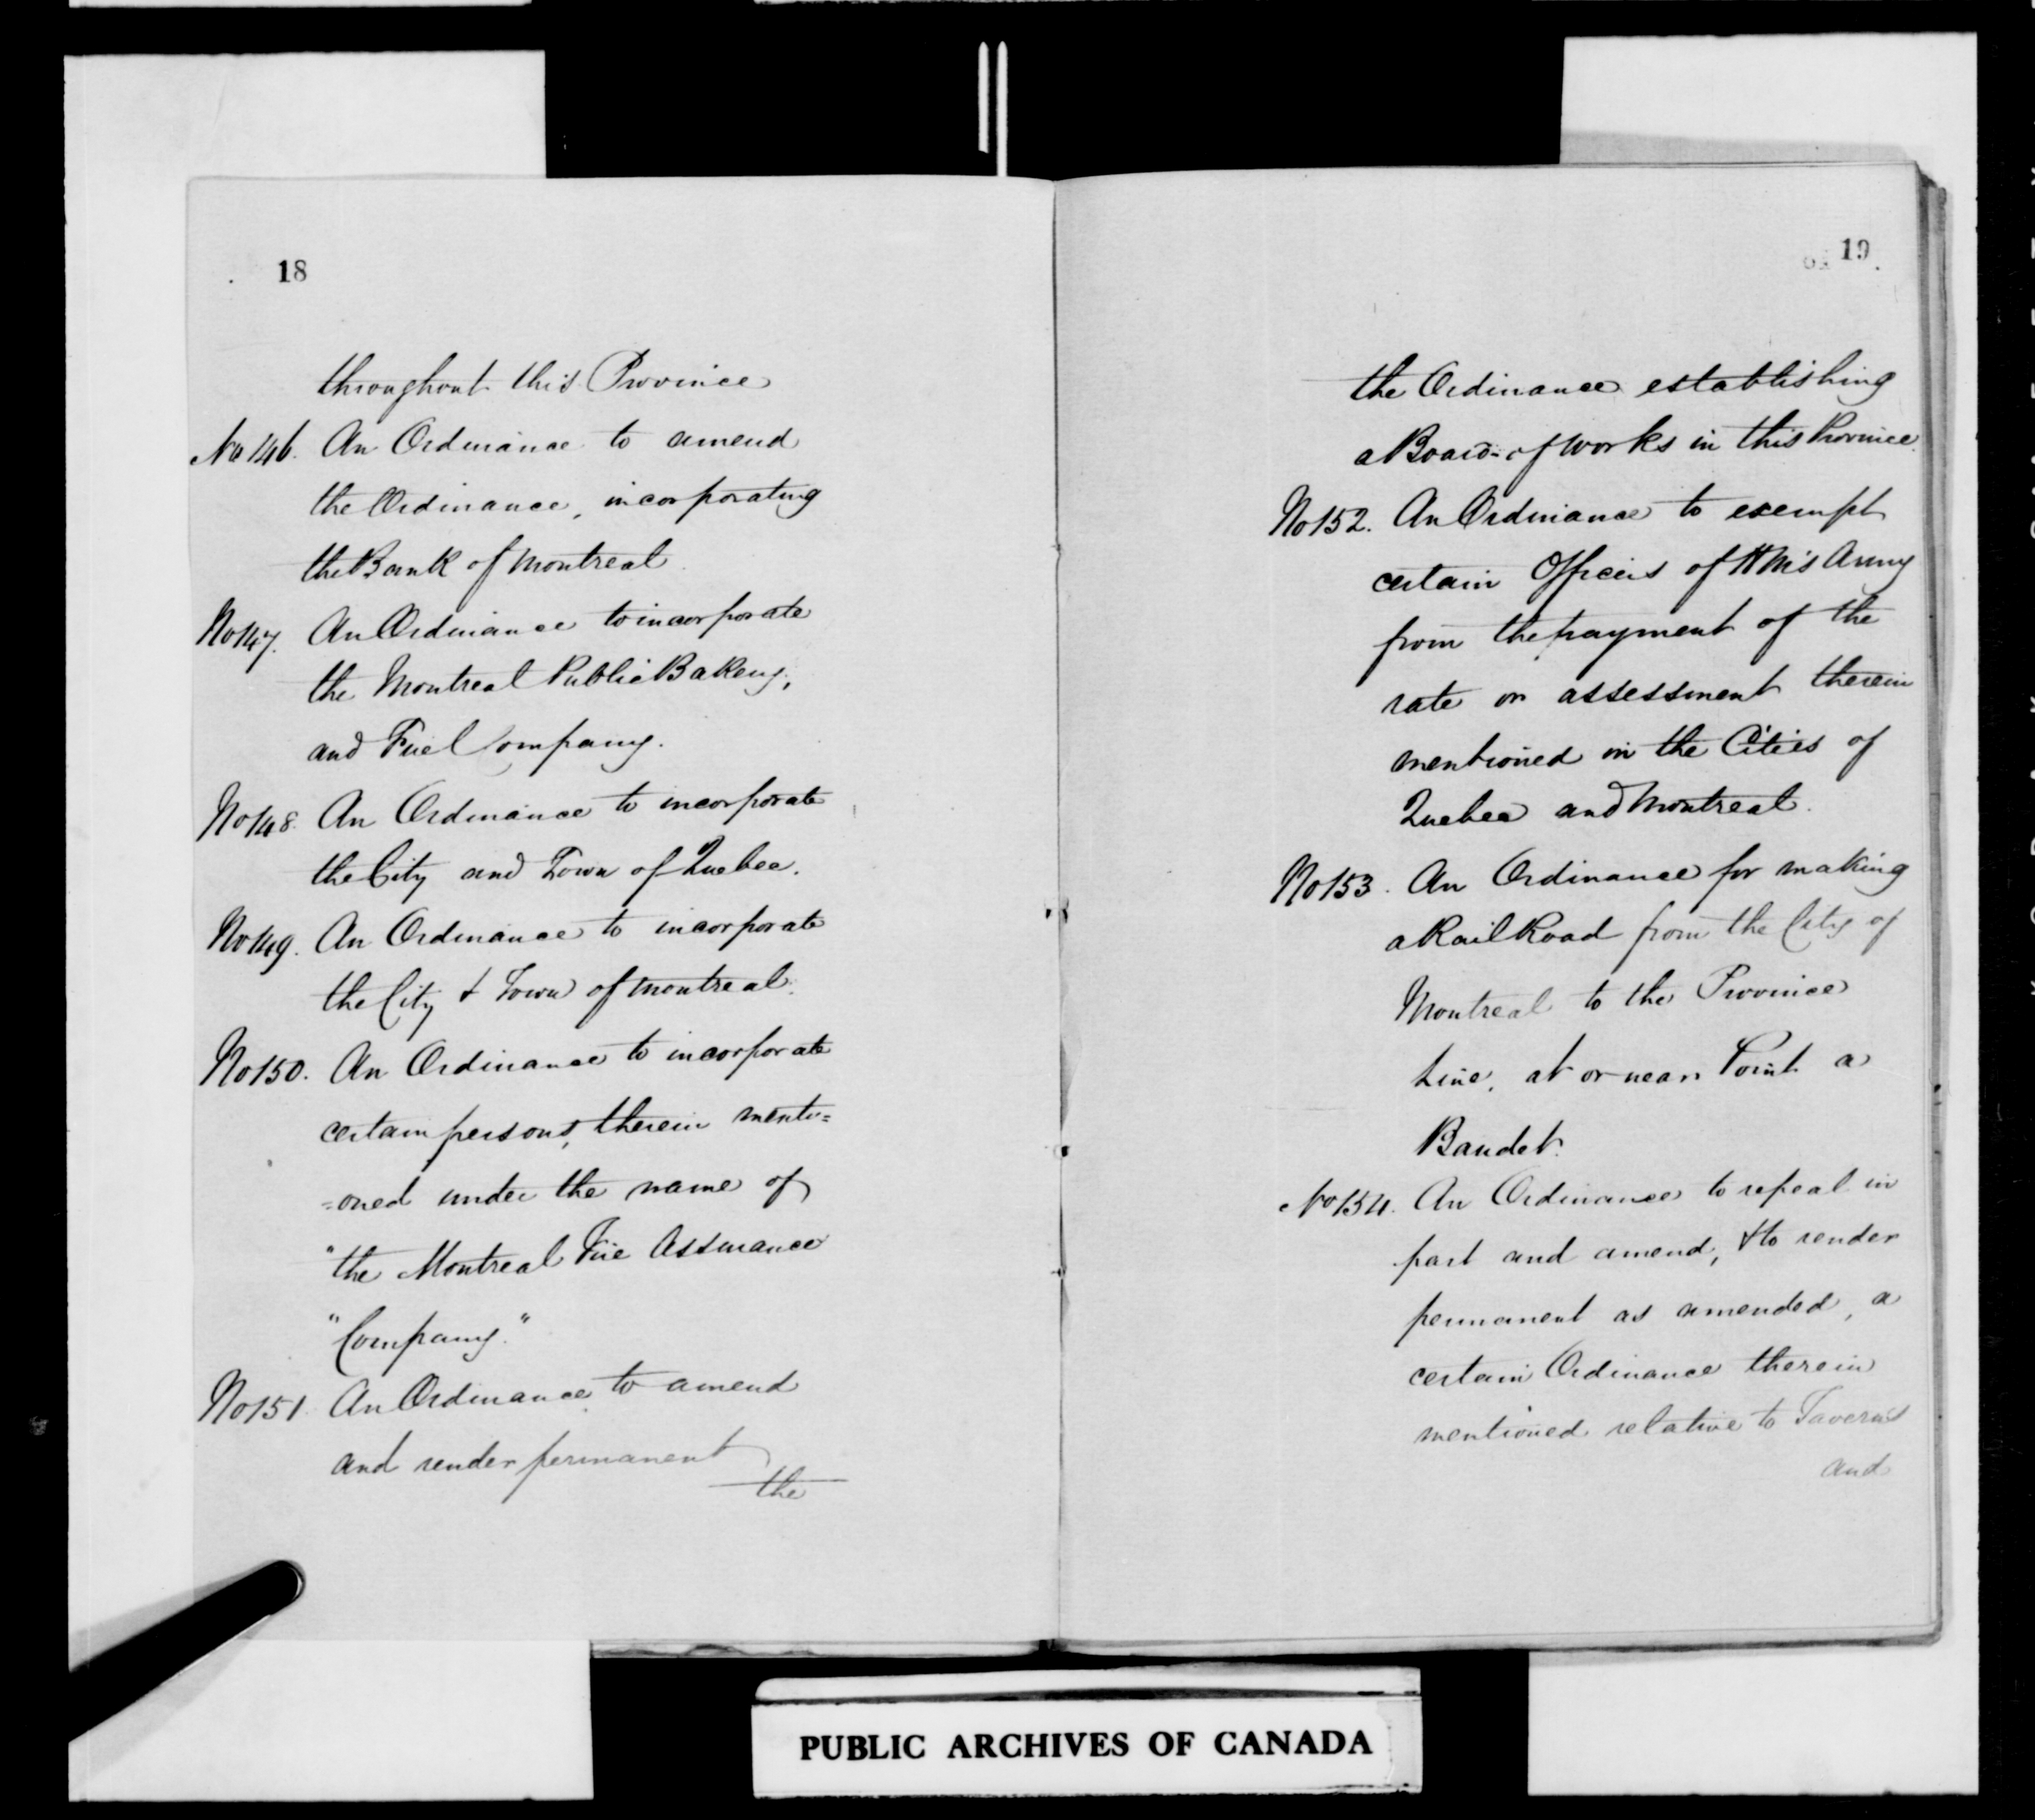 18
throughout this Province
No 146. An Ordinance to amend
the Ordinance, incorporating
the Bank of Montreal.
No 147. An Ordinance to incorporate
the Montreal Public Bakery,
and Fuel Company.
No 148. An Ordinance to incorporate
the City and Town of Quebec.
No 149. An Ordinance to incorporate
the City & Town of Montreal.
No 150. An Ordinance to incorporate
certain persons, therein menti=
=oned under the name of
"the Montreal Fire Assurance
"Company."
No 151 An Ordinance to amend
and render permanent
the
19
the Ordinance establishing
a Board of works in this Province.
No 152. An Ordinance to exempt
certain Officers of H M's Army
from the payment of the
rate or assessment therein
mentioned in the Cities of
Quebec and Montreal.
No 153. An Ordinance for making
a Rail Road from the City of
Montreal to the Province
Line, at or near Point a
Baudet.
No 154. An Ordinance to repeal in
part and amend, & to render
permanent as amended, a
certain Ordinance therein
mentioned relative to Taverns
and
PUBLIC ARCHIVES OF CANADA